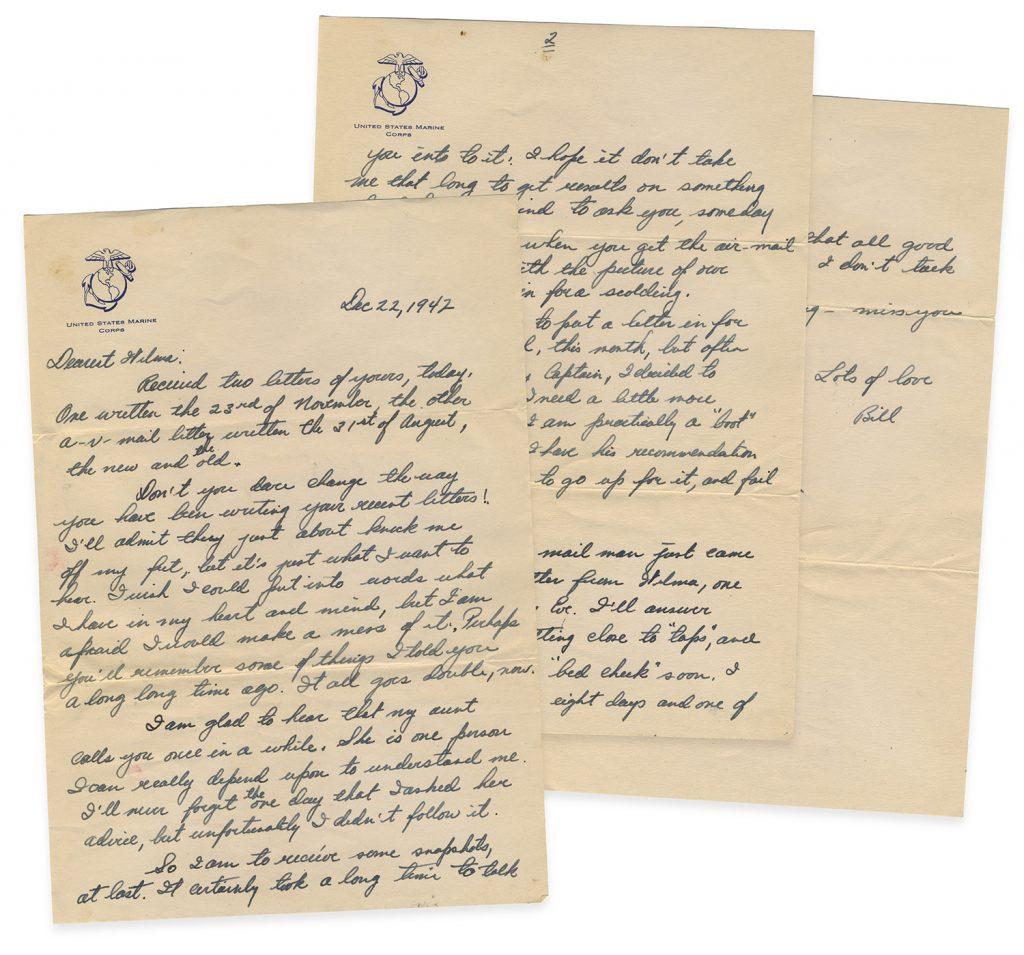 UNITED STATES MARINE
CORPS
Dec 22, 1942
Dearest Wilma:
Received two letters of yours, today.
One written the 23rd of November, the other
a-v-mail letter written the 31st of August,
the new and the old.
Don't you dare change the way
you have been writing your recent letters!
I'll admit they just about knock me
off my feet, but it's just what I want to
hear. I wish I could put into words what
I have in my heart and mind, but I am
afraid I would make a mess of it. Perhaps
you'll remember some of things I told you
a long long time ago. It all goes double, now.
I am glad to hear that my aunt
calls you once in a while. She is one person
I can really depend upon to understand me.
I'll never forget the one day that I asked her
advice, but unfortunately I didn't follow it.
So I am to receive some snapshots,
at last. It certainly took a long time to talk
2
UNITED STATES MARINE
CORPS
you into to it! I hope it don't take
me that long to get results on something
to ask you, someday
when you get the air-mail
the picture of our
in for a scolding.
to put a letter in for
this month, but after
Captain, I decided to
I need a little more
I am practically a "boot"
I have his recommendation
to go up for it, and fail
mail man just came
from Wilma, one
I'll answer
close to "taps", and
"bed check" soon. I
eight days and one of
that all good
I don't
miss you
Lots of love
Bill